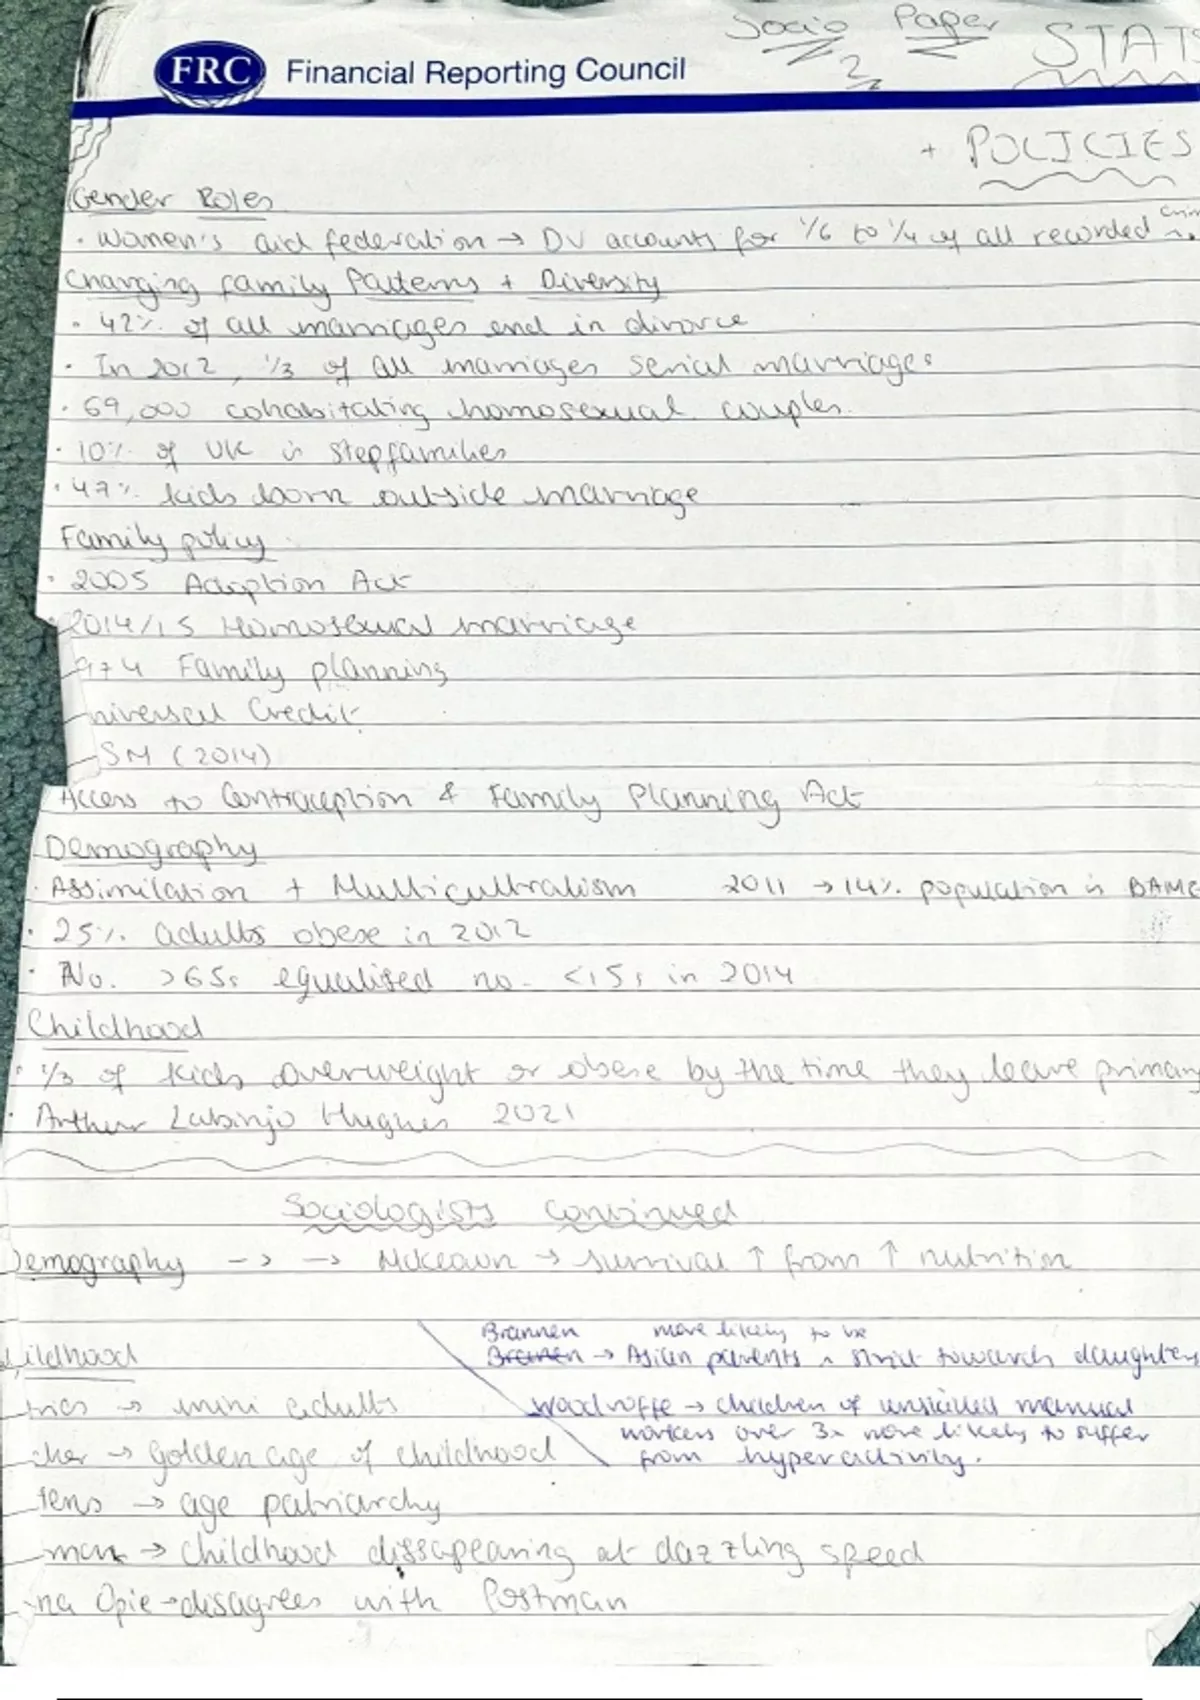 Socio Paper 2 STATS
FRC Financial Reporting Council
+ POLICIES
Gender Roles
· Women's aid federation → DV accounts for 1/6 to 1/4 of all recorded
Changing family Patterns + Diversity
· 42% of all marriages end in divorce
· In 2012, 1/3 of all marriages serial marriages
· 69,000 cohabitating homosexual couples.
· 10% of UK is stepfamilies
· 47% kids born outside marriage
Family policy
· 2005 Adoption Act
· 2014/15 Homosexual marriage
974 Family planning
niversal Credit
SM (2014)
Access to Contraception & Family Planning Act
Demography
· Assimilation + Multiculturalism 2011 → 14% population is BAME
· 25% adults obese in 2012
· No. >65s equalised no. <15s in 2014
Childhood
· 1/3 of kids overweight or obese by the time they leave primary
· Arthur Labinjo Hughes 2021
Sociologists continued
Demography --> --> McKeown → survival ↑ from ↑ nutrition
Brannen more likely to be
ildhood Brannen → Asian parents ^ strict towards daughters
ries → mini adults Woodroffe → children of unskilled manual
workers over 3x more likely to suffer
cher → golden age of childhood from hyperactivity.
tens → age patriarchy
man → childhood dissapearing at dazzling speed
na Opie → disagrees with Postman